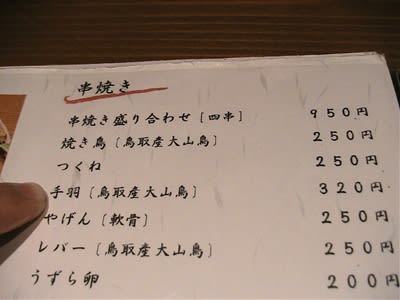 串焼き
串焼き盛り合わせ［四串］ 950円
焼き鳥［鳥取産大山鳥］ 250円
つくね 250円
手羽［鳥取産大山鳥］ 320円
やげん［軟骨］ 250円
レバー［鳥取産大山鳥］ 250円
うずら卵 200円